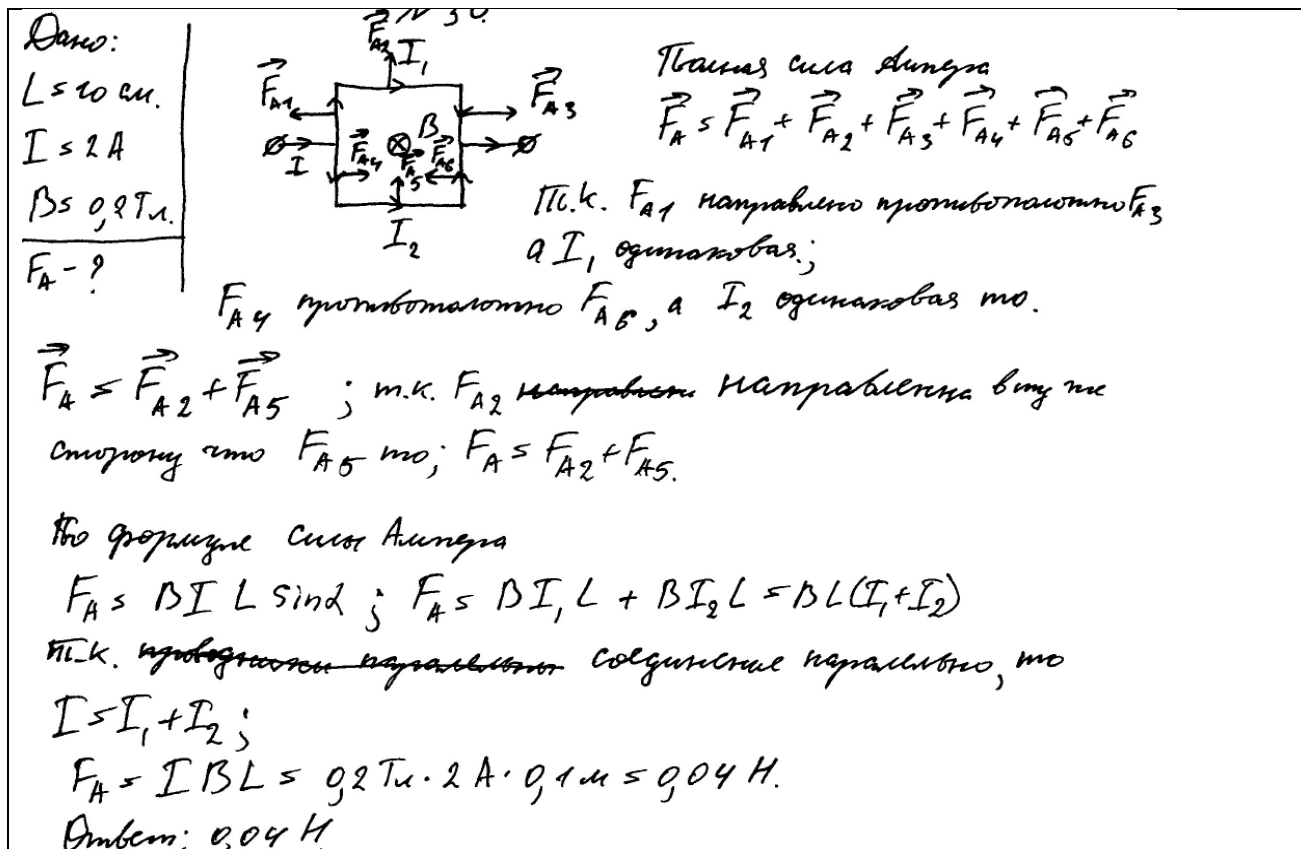 № 30.
Дано:
L = 10 см.
I = 2 А
B = 0,2 Тл.
F_A - ?
F_A2 I_1
F_A1 F_A3
B
I F_A4 F_A5 F_A6
I_2
Полная сила Ампера
F_A = F_A1 + F_A2 + F_A3 + F_A4 + F_A5 + F_A6
Т.к. F_A1 направлено противоположно F_A3
а I_1 одинаковая;
F_A4 противоположно F_A6, а I_2 одинаковая то.
F_A = F_A2 + F_A5 ; т.к. F_A2 направленна в ту же
сторону что F_A5 то; F_A = F_A2 + F_A5.
По формуле силы Ампера
F_A = B I L sinα ; F_A = BI_1L + BI_2L = BL(I_1+I_2)
Т.к. проводники паралельны соединение паралельно, то
I = I_1 + I_2 ;
F_A = I B L = 0,2 Тл · 2 А · 0,1 м = 0,04 Н.
Ответ: 0,04 Н